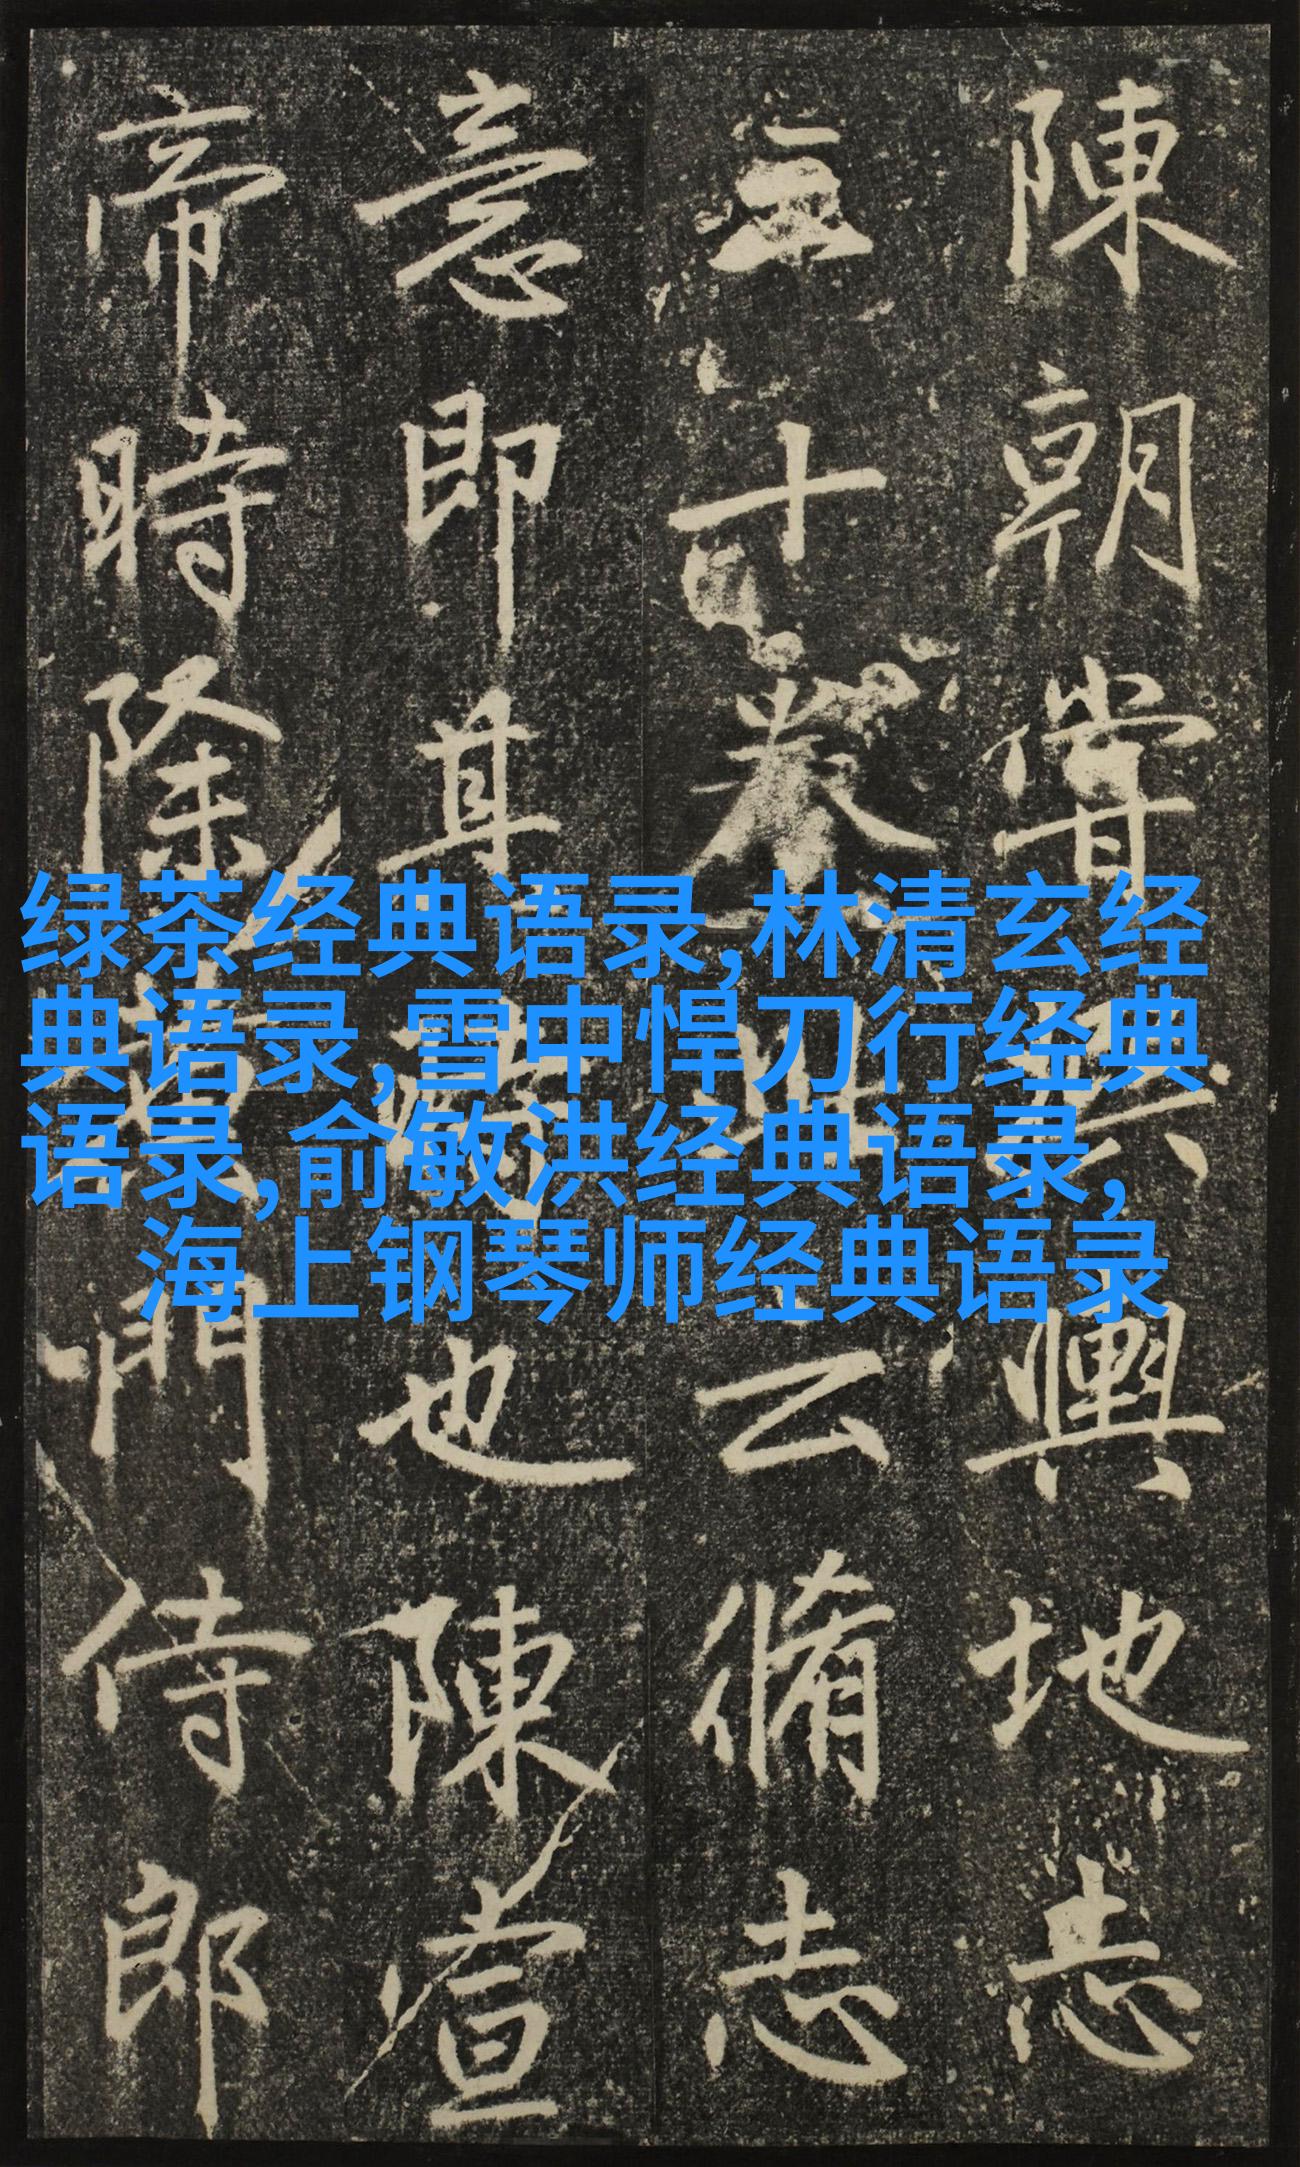 陳朝嘗輿地志
十卷云脩志
意即其也陳宣
帝時除門侍郎
绿茶经典语录,林清玄经
典语录,雪中悍刀行经典
语录,俞敏洪经典语录,
海上钢琴师经典语录